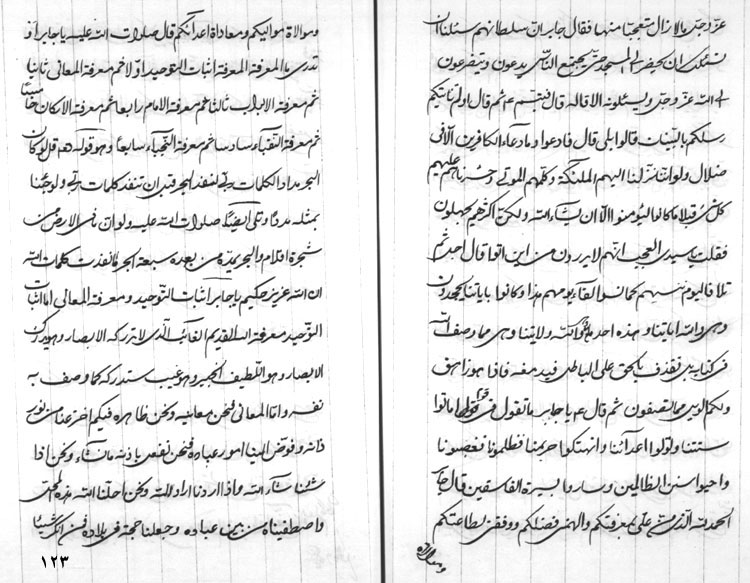 عزّ وجلّ ما لا زال متعجبًا منها فقال جابر انّ سلطانهم سئلنا ان
نسئلك ان تحضر الى المسجد حتى يجتمع الناس يدعون ويتضرعون
الى الله عزّ وجلّ ويسئلونه الاقالة قال فتبسم ع ثم قال اولم تاتيكم
رسلكم بالبينات قالوا بلى قال فادعوا وما دعاء الكافرين الّا فى
ضلال ولو اننا نزلنا اليهم الملئكة وكلمهم الموتى وحشرنا عليهم
كل شئ قبلا ما كانوا ليؤمنوا الّا ان يشاء الله ولكنّ اكثرهم يجهلون
فقلت يا سيدى العجب انّهم لا يدرون من اين اتوا قال اجل ثم
تلا فاليوم ننسيهم كما نسوا لقاء يومهم هذا وكانوا باياتنا يجحدون
وهى والله اياتنا وهذه احدها والله ولايتنا وهى مما وصف الله
فى كتابه بل نقذف بالحق على الباطل فيدمغه فاذا هو زاهق
ولكم الويل مما تصفون ثم قال ع يا جابر ما تقول فى قوم اماتوا
سنتنا وتولوا اعدائنا وانتهكوا حريمنا فظلمونا وغصبونا
واحيوا سنن الظالمين وساروا بسيرة الفاسقين قال جابر
الحمد لله الّذى منّ علىّ بمعرفتكم والهمنى فضلكم ووفقنى لطاعتكم
وموالاة
وموالاة مواليكم ومعاداة اعدائكم قال صلوات الله عليه يا جابر او
تدرى ما المعرفة المعرفة اثبات التوحيد اوّلا ثم معرفة المعانى ثانيا
ثم معرفة الابواب ثالثا ثم معرفة الامام رابعا ثم معرفة الاركان خامسًا
ثم معرفة النقباء سادسا ثم معرفة النجباء سابعًا وهو قوله تعالى قل لو كان
البحر مدادا لكلمات ربّى لنفد البحر قبل ان تنفد كلمات ربّى ولو جئنا
بمثله مددًا وتلى ايضًا صلوات الله عليه ولو ان ما فى الارض من
شجرة اقلام والبحر يمدّه من بعده سبعة ابحر ما نفدت كلمات الله
ان الله عزيز حكيم يا جابر اثبات التّوحيد ومعرفة المعانى اما اثبات
التوحيد معرفة الله القديم الغائب الّذى لا تدركه الابصار وهو يدرك
الابصار وهو اللّطيف الخبير وهو غيب ستدركه كما وصف به
نفسه وامّا المعانى فنحن معانيه ونحن ظاهره فيكم اخترعنا من نور
ذاته وفوّض الينا امور عباده فنحن نفعل باذنه ما نشاء ونحن اذا
شئنا شاء الله واذا اردنا اراد الله ونحن احلّنا الله هذه المحل
واصطفينا من بين عباده وجعلنا حجته فى بلاده فمن انكر شيئًا
١٢٣